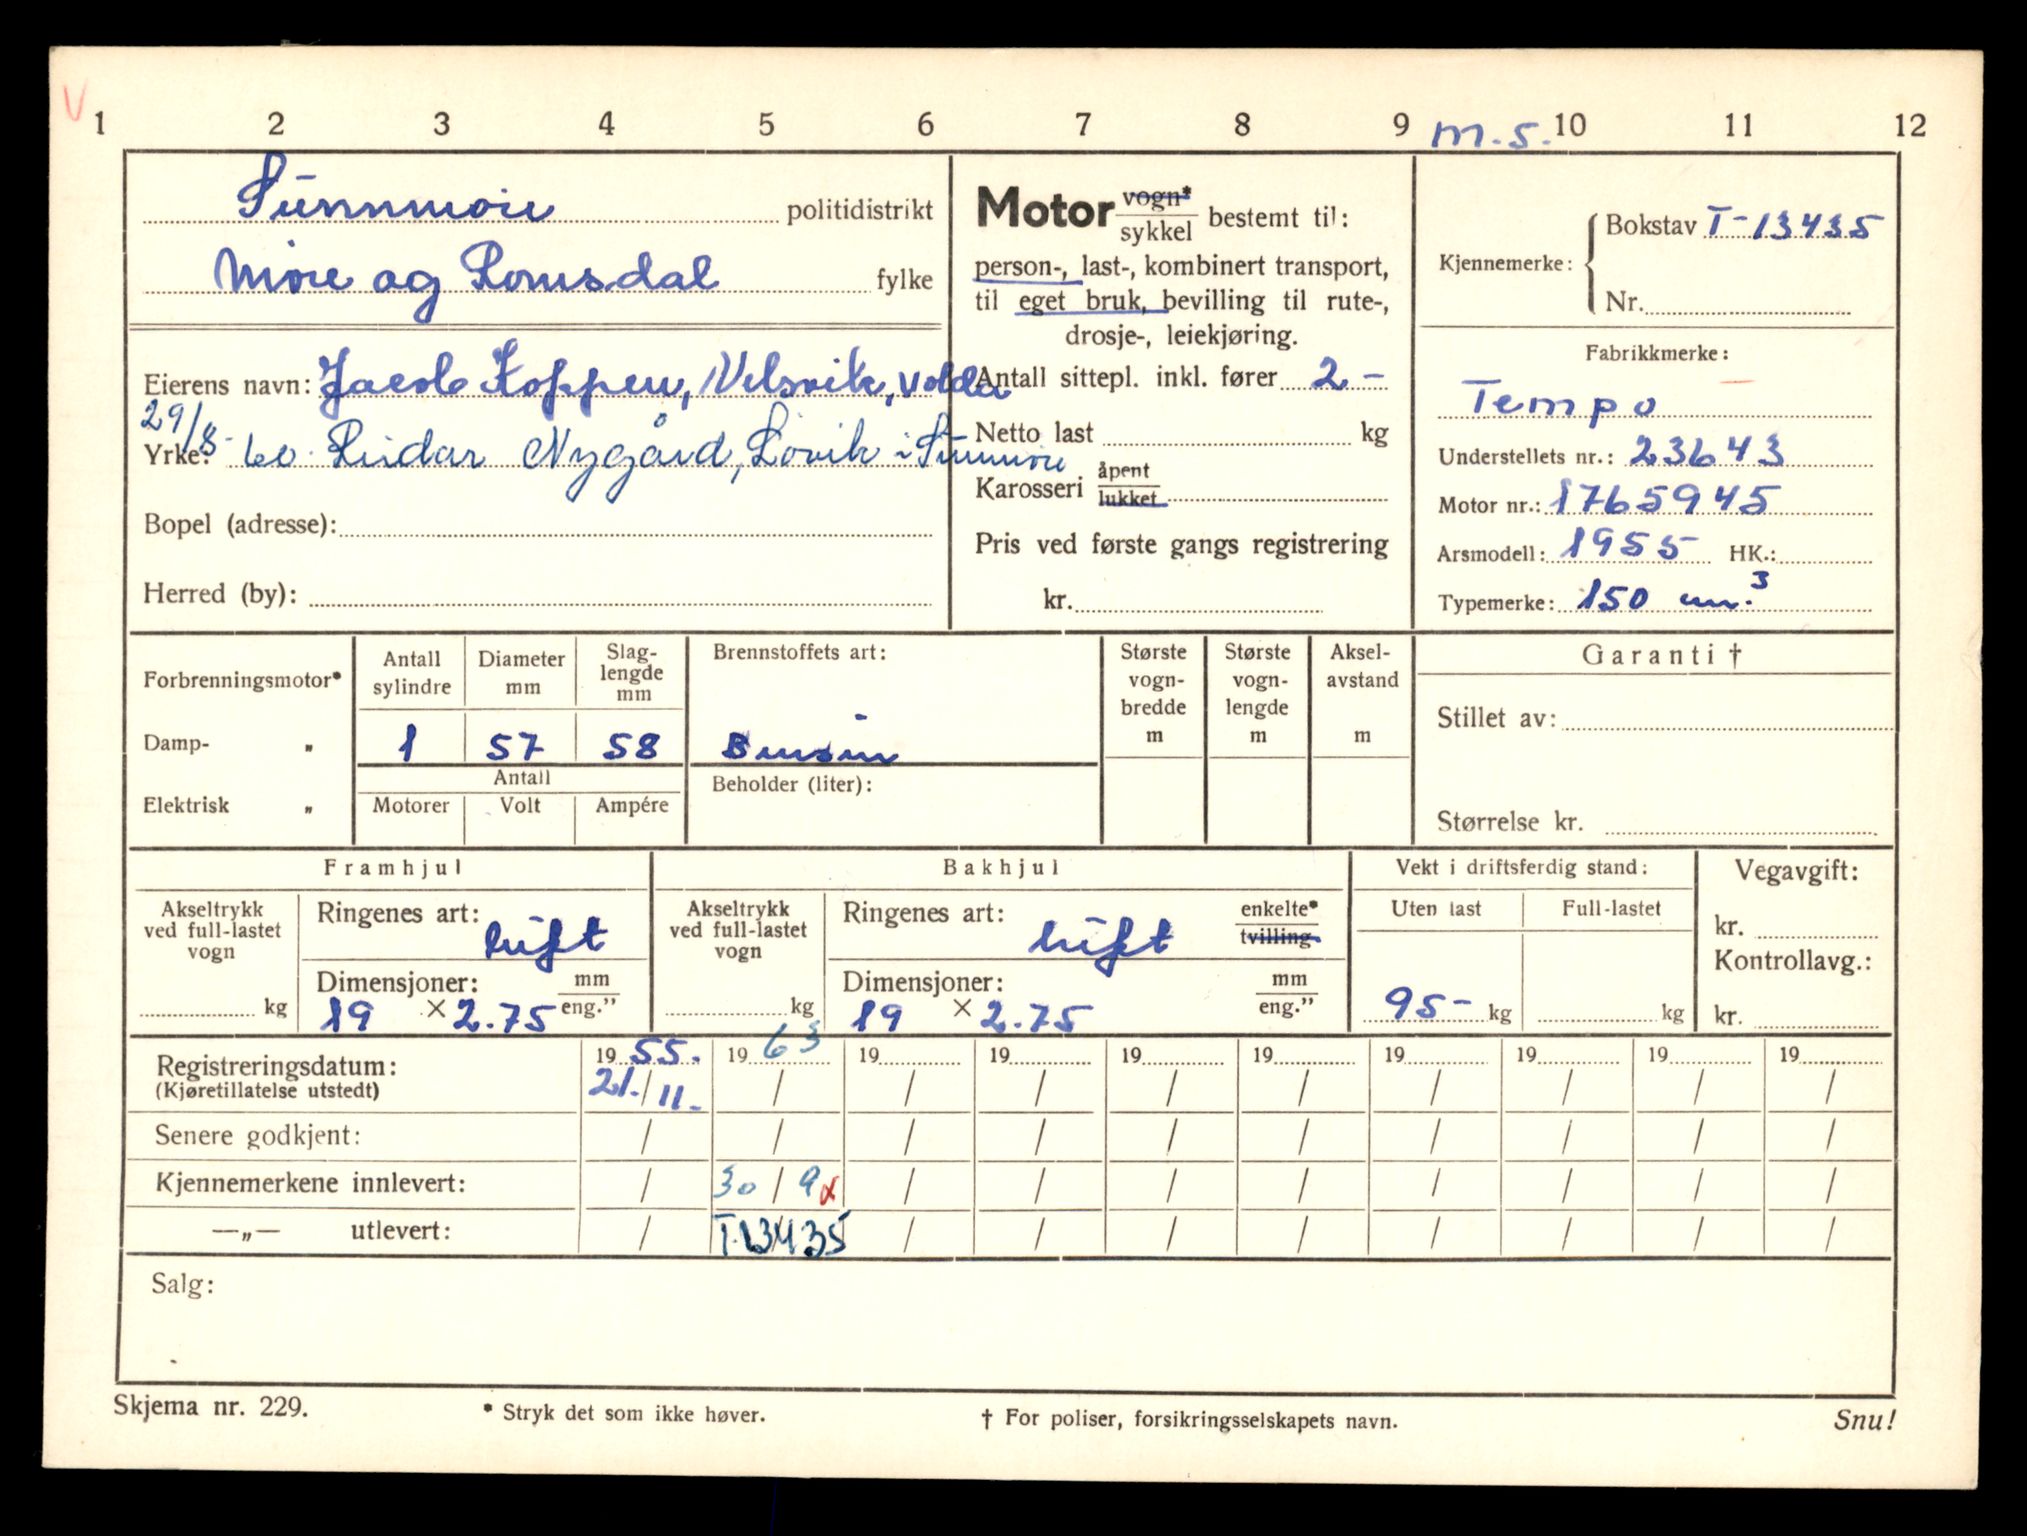 V
1 2 3 4 5 6 7 8 9 m.s. 10 11 12
Sunnmøre politidistrikt
Møre og Romsdal fylke
Eierens navn: Jacob Koppen, Velsvik, Volda
29/8- 60. Reidar Nygård, Lovik i Sunnmøre
Yrke:
Bopel (adresse):
Herred (by):
Motor vogn* / sykkel bestemt til:
person-, last-, kombinert transport,
til eget bruk, bevilling til rute-,
drosje-, leiekjøring.
Antall sittepl. inkl. fører 2 -
Netto last kg
Karosseri åpent / lukket
Pris ved første gangs registrering
kr.
Kjennemerke: Bokstav T-13435
Nr.
Fabrikkmerke:
Tempo
Understellets nr.: 23643
Motor nr.: 1765945
Arsmodell: 1955 HK.:
Typemerke: 150 cm.³
Forbrenningsmotor*
Damp- „
Elektrisk „
Antall sylindre 1
Diameter mm 57
Slaglengde mm 58
Antall
Motorer Volt Ampére
Brennstoffets art:
Bensin
Beholder (liter):
Største vogn-bredde m
Største vogn-lengde m
Aksel-avstand m
Garanti †
Stillet av:
Størrelse kr.
Framhjul
Akseltrykk ved full-lastet vogn
kg
Ringenes art: luft
Dimensjoner: mm / eng.”
19 × 2.75
Bakhjul
Akseltrykk ved full-lastet vogn
kg
Ringenes art: luft enkelte* / tvilling
Dimensjoner: mm / eng.”
19 × 2.75
Vekt i driftsferdig stand:
Uten last Full-lastet
95- kg kg
Vegavgift:
kr.
Kontrollavg.:
kr.
Registreringsdatum: 19 55. 19 63 19 19 19 19 19 19 19 19
(Kjøretillatelse utstedt) 21./11. / / / / / / / / /
Senere godkjent: / / / / / / / / / /
Kjennemerkene innlevert: / 30/9 x / / / / / / / /
—„— utlevert: / T-13435 / / / / / / / /
Salg:
Skjema nr. 229.
* Stryk det som ikke høver.
† For poliser, forsikringsselskapets navn.
Snu!